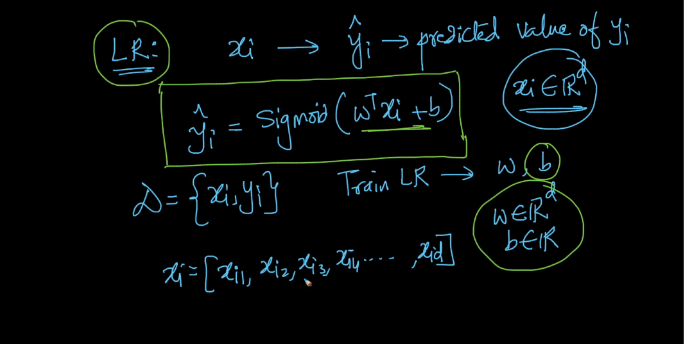 LR: xi → ŷi → predicted value of yi
xi ∈ ℝᵈ
ŷi = Sigmoid (wᵀxi + b)
D = {xi, yi} Train LR → w, b
w ∈ ℝᵈ
b ∈ ℝ
xi = [xi1, xi2, xi3, xi4 ...., xid]